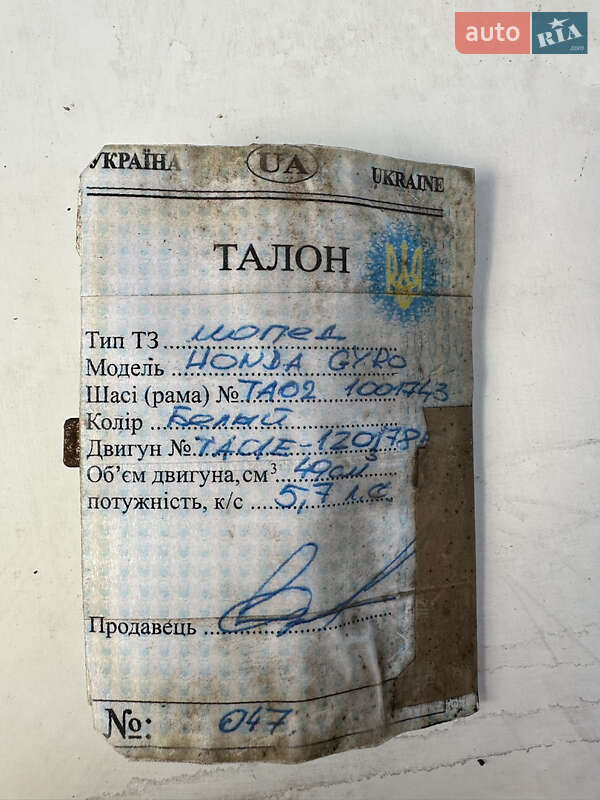 auto RIA .com
УКРАЇНА UA UKRAINE
ТАЛОН
Тип ТЗ мопед
Модель HONDA GYRO
Шасі (рама) № TA02 1001743
Колір Белый
Двигун №
Об’єм двигуна, см³ 49 см³
потужність, к/с 5,7 л.с
Продавець
№: 047